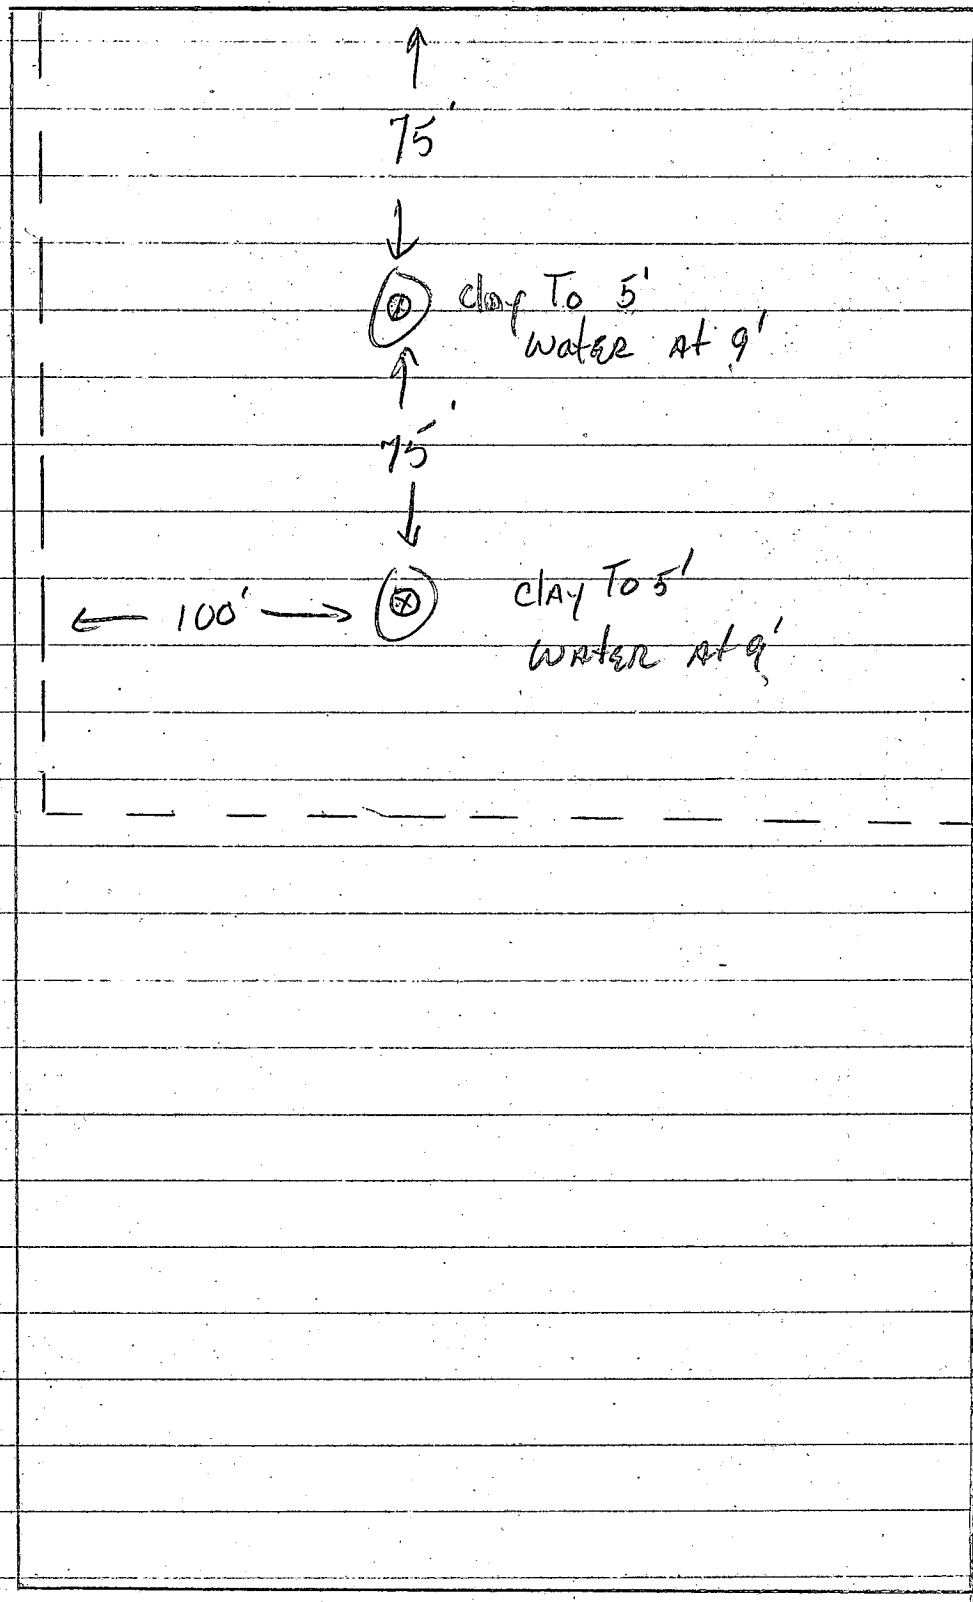 75'
clay To 5'
water At 9'
75'
100'
clAy To 5'
water At 9'